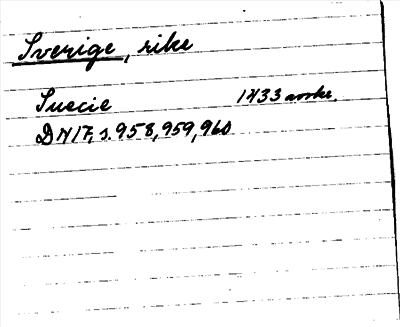 Sverige, rike
Suecie 1433 avskr.
DN 17, s. 958, 959, 960